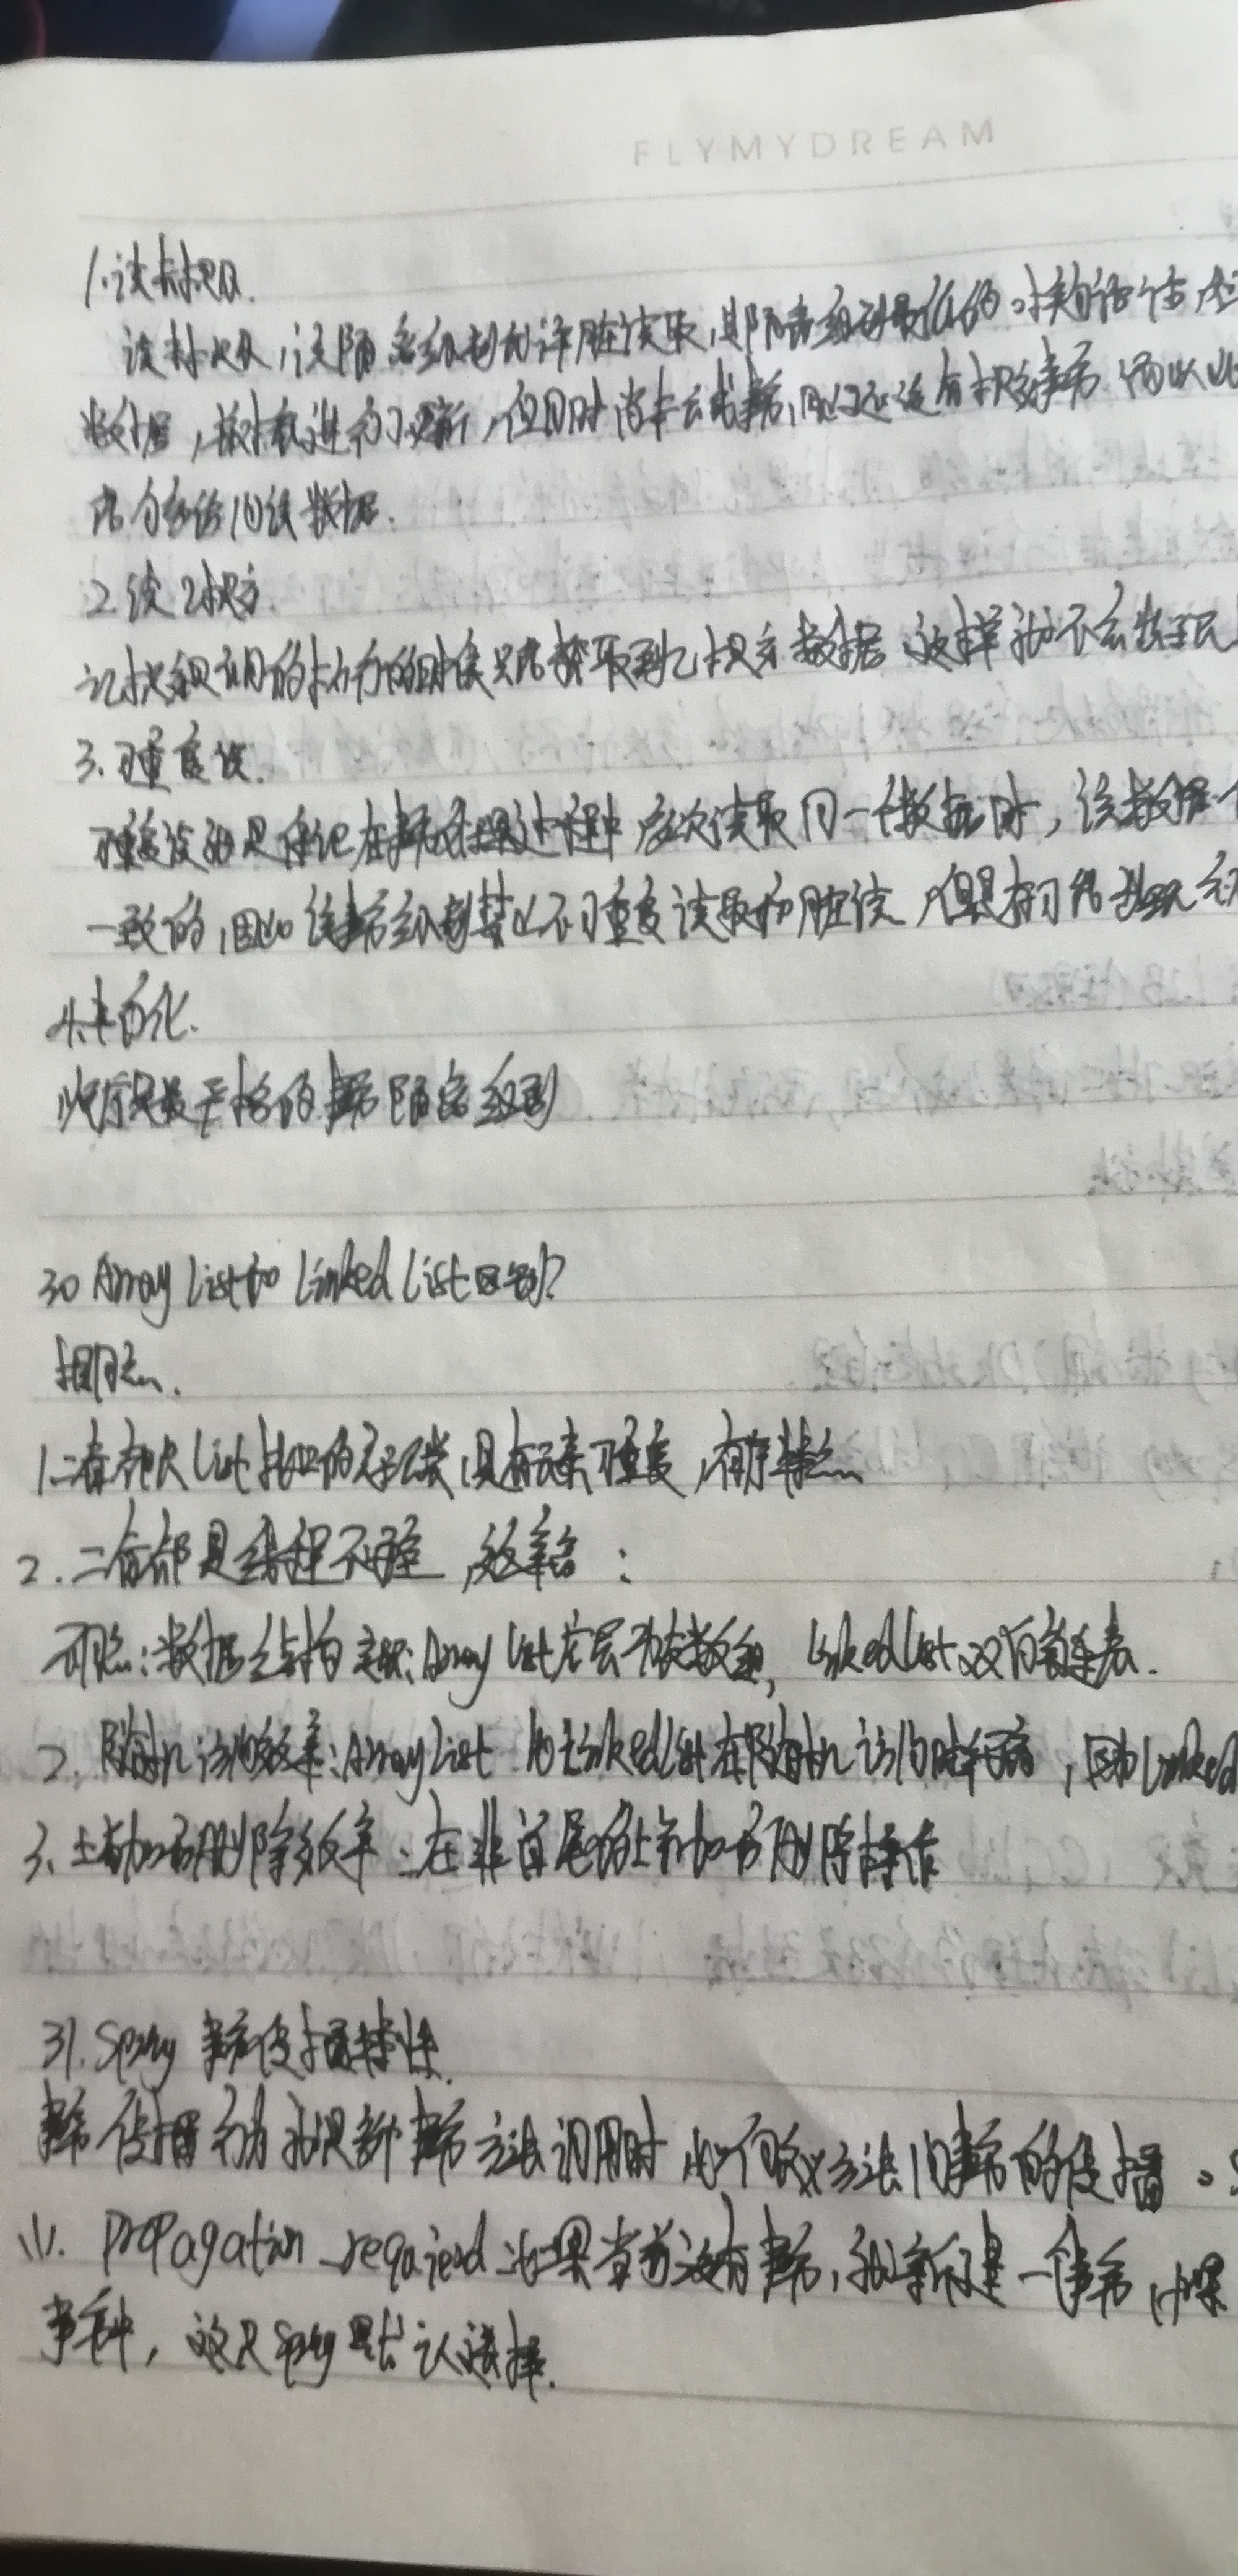 FLYMYDREAM
1.读未提交.
读未提交,该隔离级别允许脏读取,其隔离级别最低的
数据,进行了更新,但同时尚未提交事务
数据.
2.读已提交
的时候只能获取到已提交数据 这样就不会出现
3.可重复读.
可重复读就是保证在事务处理过程中多次读取同一个数据时,该数据
一致的,因此该事务级别禁止不可重复读取和脏读,但是有可能出现
4.串行化.
是最严格的事务隔离级别
30 Array List和 Linked List区别?
相同点.
1.二者都是List接口的实现类,具有元素可重复,有序特点
2.二者都是线程不安全,效率高:
不同点:数据结构实现:Array List底层为数组, Linked List双向链表.
2.随机访问效率:Array List 比Linked List在随机访问时较高,因为Linked
3.增加和删除效率:在非首尾的增加和删除操作
31.Spring 事务传播特性.
事务传播行为就是多个事务方法调用时 如何定义方法间事务的传播。
(1). Propagation_required 如果当前没有事务,就新建一个事务,如果
事务中,这是Spring默认选择.